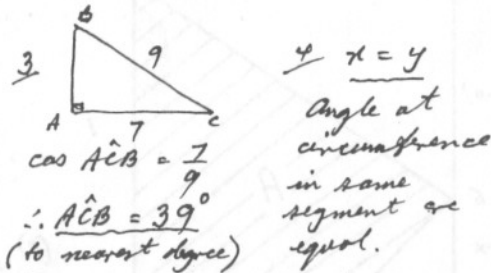 3
B
9
A
7
C
cos AĈB = 7/9
∴ AĈB = 39°
(to nearest degree)
4 x = y
Angle at
circumference
in same
segment are
equal.